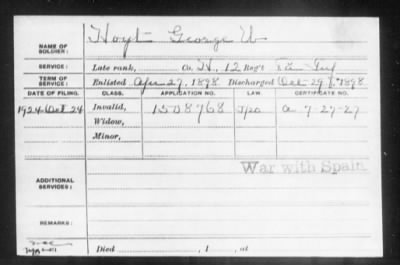 NAME OF SOLDIER: Hoyt George W
SERVICE: Late rank, Co. H, 12 Reg't Inf
TERM OF SERVICE: Enlisted Apr 27, 1898 Discharged Oct 29, 1898
DATE OF FILING. CLASS. APPLICATION NO. LAW. CERTIFICATE NO.
1924 Oct 24 Invalid, 1508768 J/20 a 7-27-27
Widow,
Minor,
War with Spain
ADDITIONAL SERVICES:
REMARKS:
Died , 1 , at